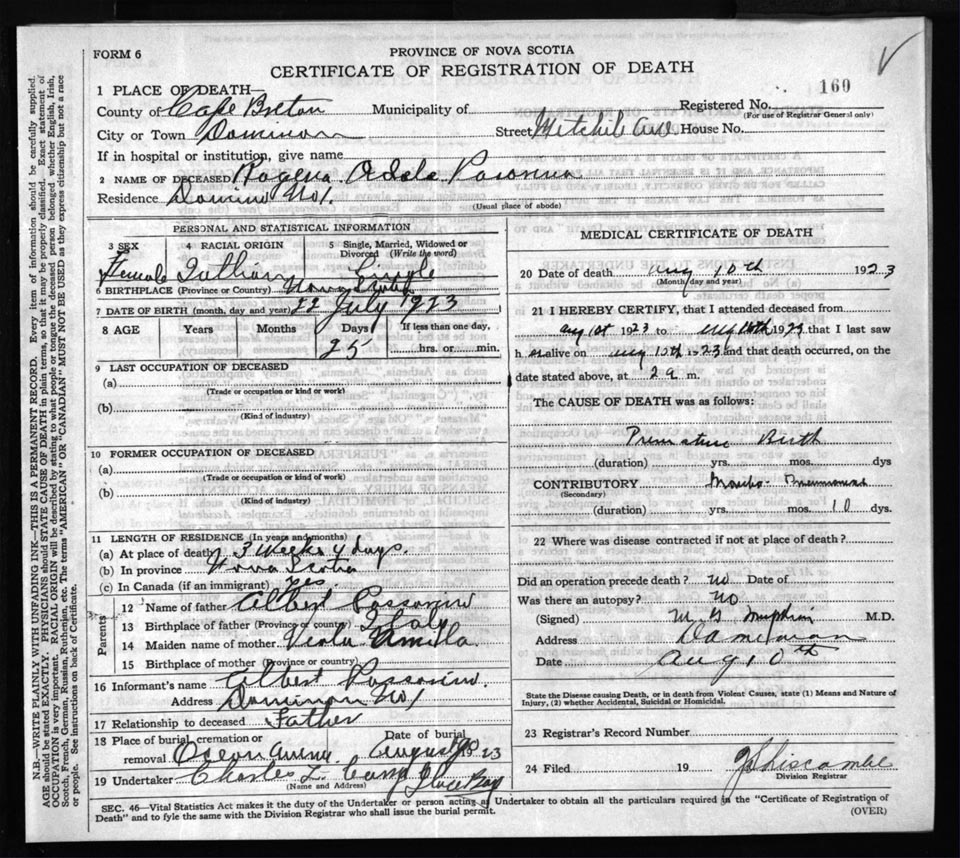 FORM 6
PROVINCE OF NOVA SCOTIA
CERTIFICATE OF REGISTRATION OF DEATH
160
1 PLACE OF DEATH
County of Cape Breton Municipality of Registered No.
(For use of Registrar General only)
City or Town Dominion Street House No.
If in hospital or institution, give name
2 NAME OF DECEASED Adele
Residence No1.
(Usual place of abode)
PERSONAL AND STATISTICAL INFORMATION
3 SEX 4 RACIAL ORIGIN 5 Single, Married, Widowed or Divorced (Write the word)
Female Single
6 BIRTHPLACE (Province or Country) Nova Scotia
7 DATE OF BIRTH (month, day and year) July 1923
8 AGE Years Months Days If less than one day,
25 hrs. or min.
9 LAST OCCUPATION OF DECEASED
(a)
(Trade or occupation or kind or work)
(b)
(Kind of industry)
10 FORMER OCCUPATION OF DECEASED
(a)
(Trade or occupation or kind or work)
(b)
(Kind of industry)
11 LENGTH OF RESIDENCE (In years and months)
(a) At place of death 3 Weeks 4 days.
(b) In province Nova Scotia
(c) In Canada (if an immigrant) yes.
Parents
12 Name of father Albert
13 Birthplace of father (Province or country) Italy
14 Maiden name of mother Viola
15 Birthplace of mother (Province or country)
16 Informant's name Albert
Address Dominion No1
17 Relationship to deceased Father
18 Place of burial, cremation or removal Date of burial
Ocean August 1923
19 Undertaker Charles L. Glace Bay
(Name and Address)
MEDICAL CERTIFICATE OF DEATH
20 Date of death Aug 10th 1923
(Month day and year)
21 I HEREBY CERTIFY, that I attended deceased from
1923 to 1923 that I last saw
h alive on Aug 10th 1923 and that death occurred, on the
date stated above, at 2 a m.
The CAUSE OF DEATH was as follows:
Premature Birth
(duration) yrs. mos. dys
CONTRIBUTORY Broncho-Pneumonia
(Secondary)
(duration) yrs. mos. 10 dys.
22 Where was disease contracted if not at place of death?
Did an operation precede death? no Date of
Was there an autopsy? no
(Signed) M.D.
Address Dominion
Date Aug 10th
State the Disease causing Death, or in death from Violent Causes, state (1) Means and Nature of
Injury, (2) whether Accidental, Suicidal or Homicidal.
23 Registrar's Record Number
24 Filed 19
Division Registrar
SEC. 46—Vital Statistics Act makes it the duty of the Undertaker or person acting as Undertaker to obtain all the particulars required in the "Certificate of Registration of
Death" and to fyle the same with the Division Registrar who shall issue the burial permit. (OVER)
N.B.—WRITE PLAINLY WITH UNFADING INK—THIS IS A PERMANENT RECORD. Every item of information should be carefully supplied.
AGE should be stated EXACTLY. PHYSICIANS should STATE CAUSE OF DEATH in plain terms, so that it may be properly classified. Exact statement of
OCCUPATION is very important. RACIAL ORIGIN will be described by stating to what people or tongue the deceased person belonged whether English, Irish,
Scotch, French, German, Russian, Ruthenian, etc. The terms "AMERICAN" OR "CANADIAN" MUST NOT BE USED as they express citizenship but not a race
or people. See instructions on back of Certificate.